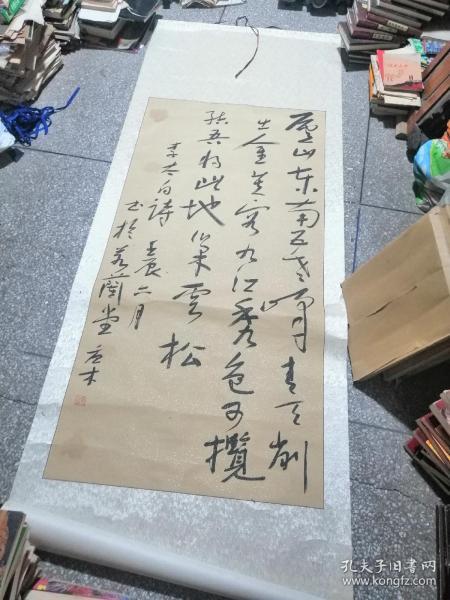 廬山东南五老峰青天削
出金芙蓉九江秀色可攬
结吾将此地巢雲松
李太白诗 壬辰二月
书於若蘭堂
孔夫子旧书网
www.kongfz.com